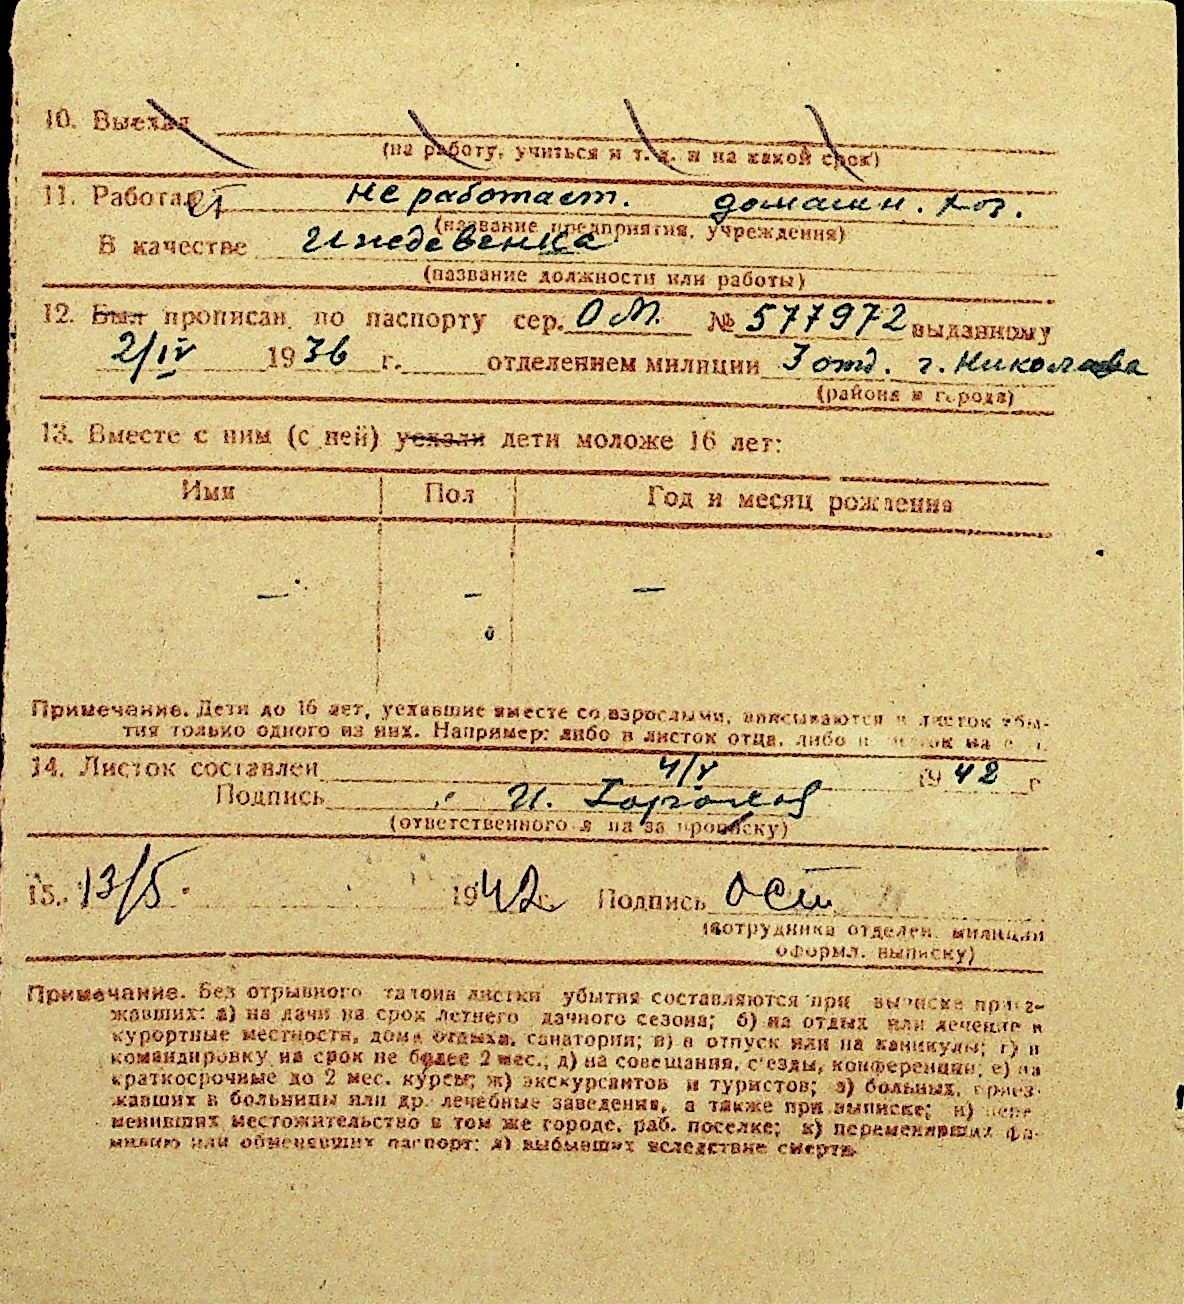 10. Выехал
(на работу, учиться и т. д. и на какой срок)
11. Работает не работает. домашн. хоз.
(название предприятия, учреждения)
В качестве Иждевенка
(название должности или работы)
12. Был прописан по паспорту сер. О М. № 577972 выданному
2/IV 1936 г. отделением милиции 3 отд. г. Николаева
(района и города)
13. Вместе с ним (с ней) уехали дети моложе 16 лет:
Имя Пол Год и месяц рождения
— — —
Примечание. Дети до 16 лет, уехавшие вместе со взрослыми, вписываются в листок убы-
тия только одного из них. Например: либо в листок отца, либо в
14. Листок составлен 4/V 1942 г
Подпись И.
(ответственного за прописку)
15. 13/5 1942 г. Подпись
(сотрудника отделен. милиции
оформл. выписку)
Примечание. Без отрывного талона листки убытия составляются при выписке приез-
жавших: а) на дачи на срок летнего дачного сезона; б) на отдых или лечение в
курортные местности, дома отдыха, санатории; в) в отпуск или на каникулы; г) в
командировку на срок не более 2 мес.; д) на совещания, с'езды, конференции; е) на
краткосрочные до 2 мес. курсы; ж) экскурсантов и туристов; з) больных, приез-
жавших в больницы или др. лечебные заведения, а также при выписке; и) пере
менивших местожительство в том же городе, раб. поселке; к) переменивших фа-
милию или обменявших паспорт; л) выбывших вследствие смерти